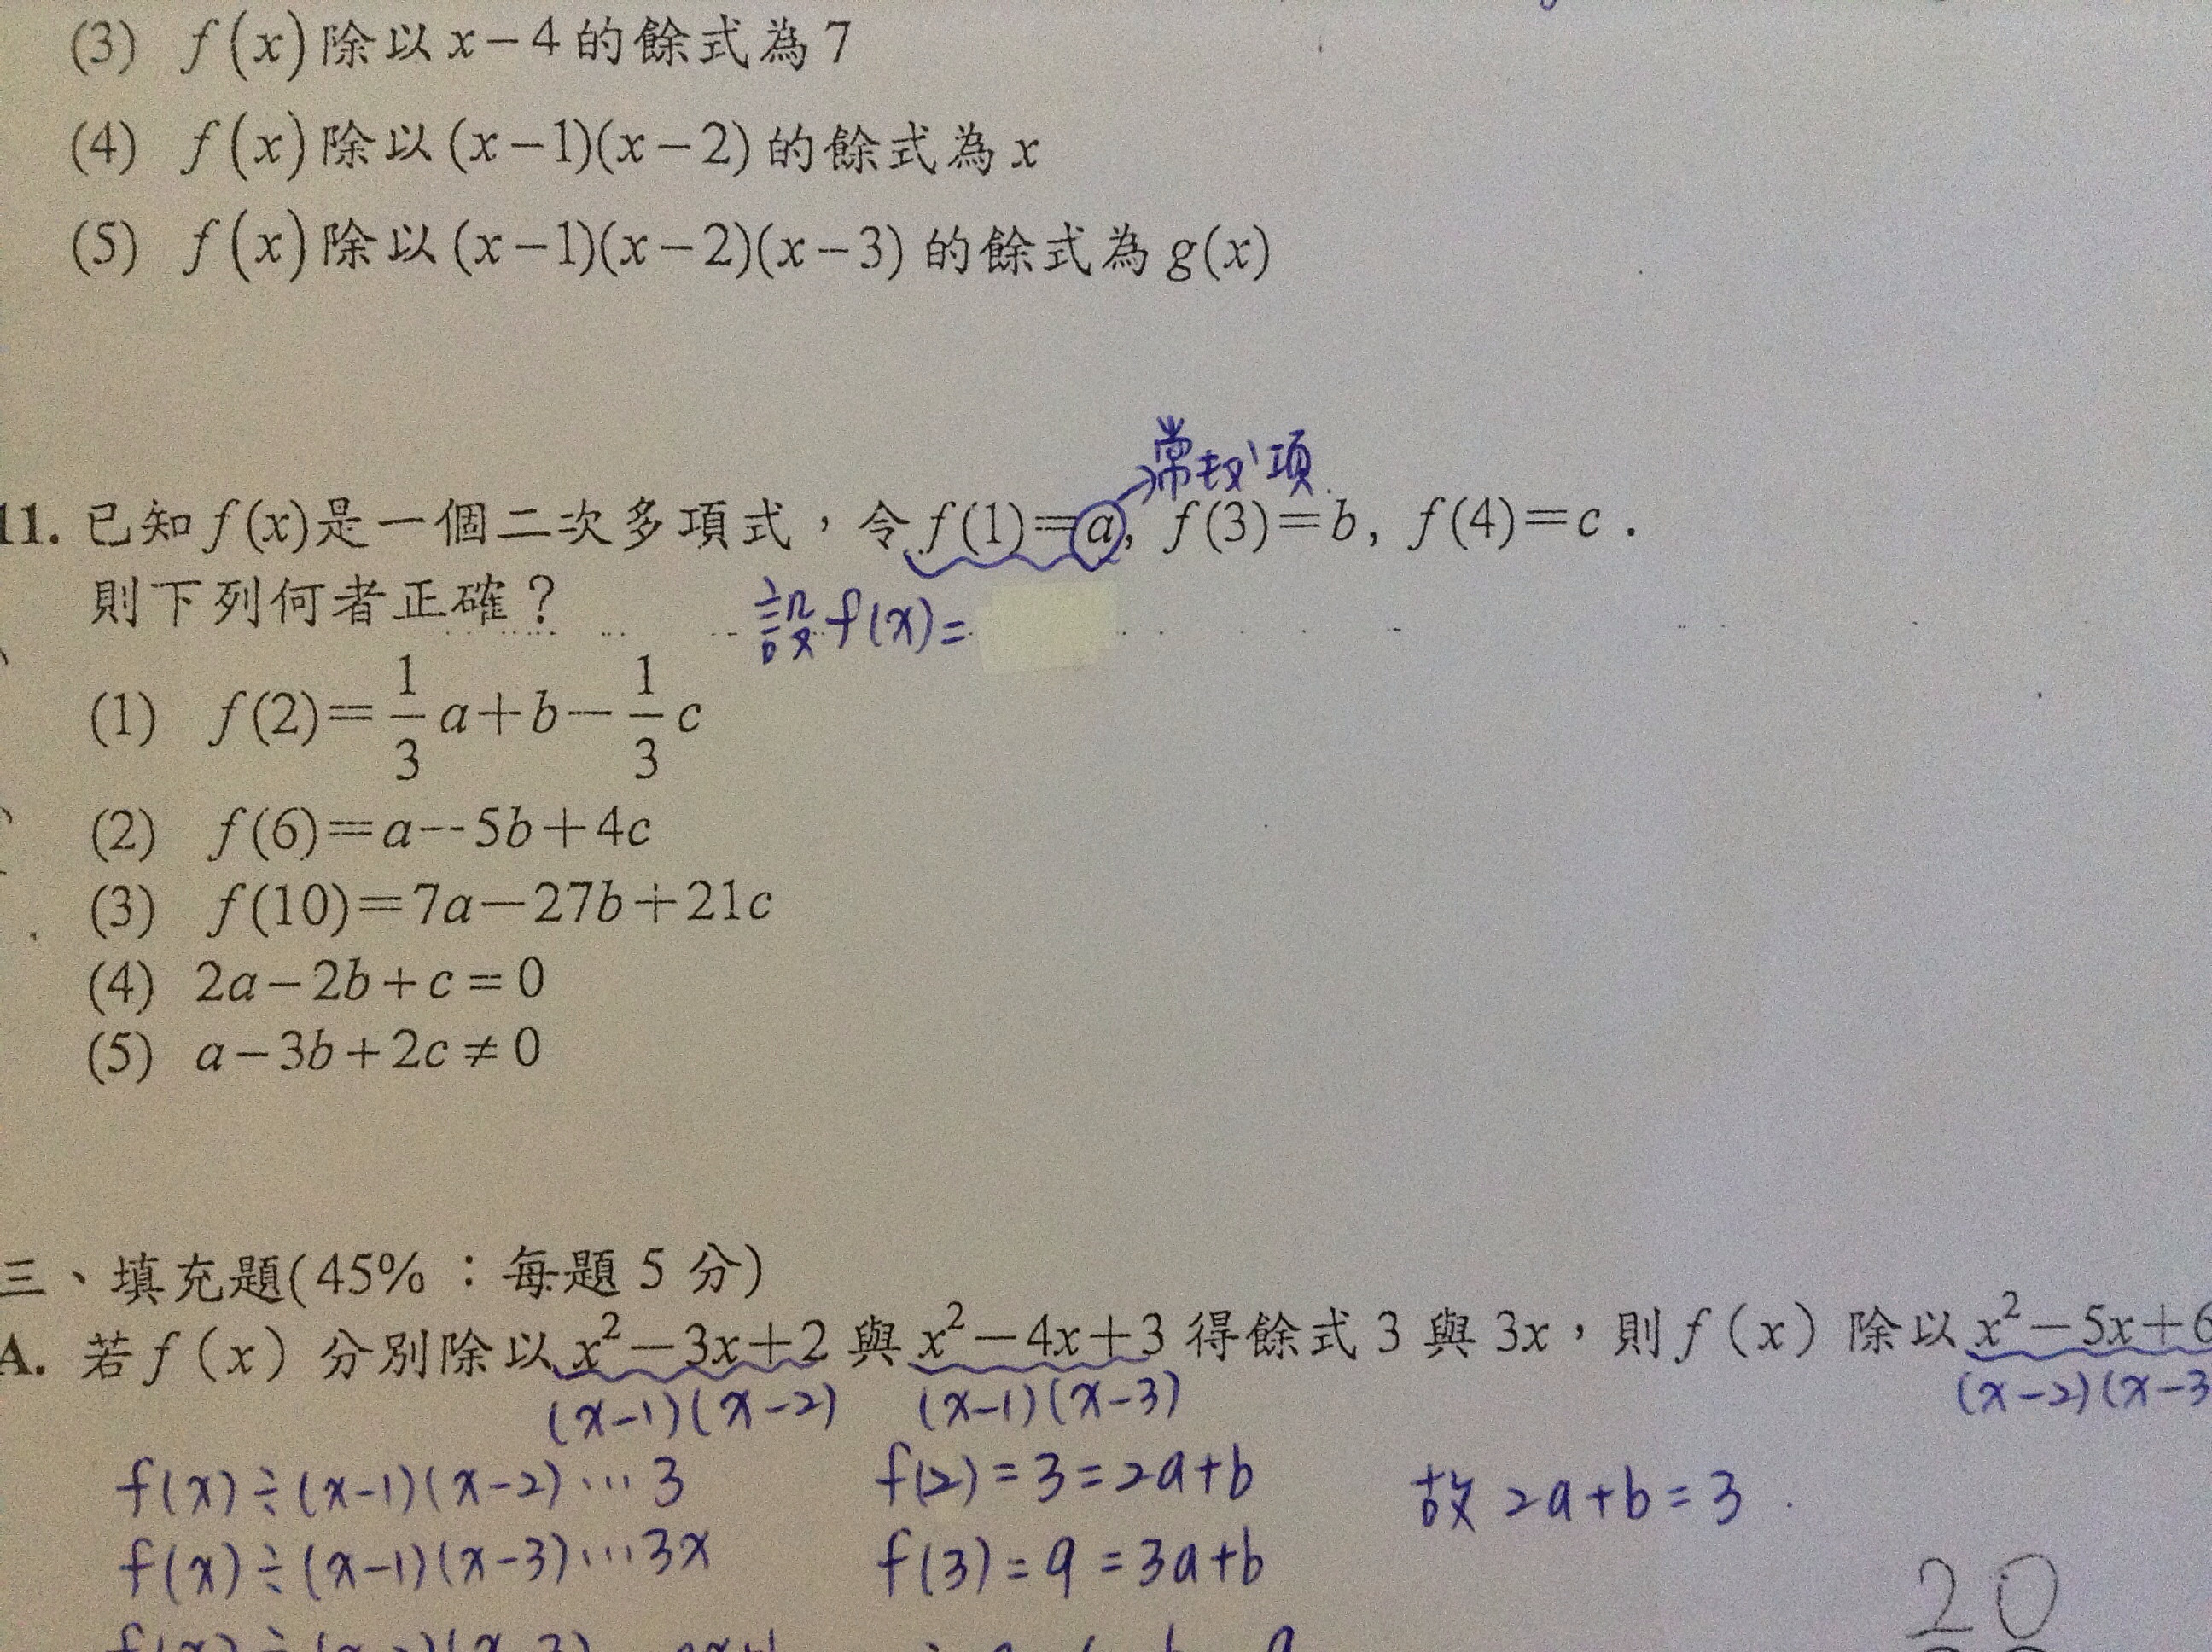 (3) f(x)除以x−4的餘式為7
(4) f(x)除以(x−1)(x−2)的餘式為x
(5) f(x)除以(x−1)(x−2)(x−3)的餘式為g(x)
常數項
11. 已知f(x)是一個二次多項式，令f(1)=a, f(3)=b, f(4)=c.
則下列何者正確？
設f(x)=
(1) f(2)=1/3a+b−1/3c
(2) f(6)=a--5b+4c
(3) f(10)=7a−27b+21c
(4) 2a−2b+c=0
(5) a−3b+2c≠0
三、填充題(45%：每題5分)
A. 若f(x)分別除以x²−3x+2與x²−4x+3得餘式3與3x，則f(x)除以x²−5x+6
(x-1)(x-2) (x-1)(x-3) (x-2)(x-3
f(x)÷(x-1)(x-2)…3 f(2)=3=2a+b 故2a+b=3.
f(x)÷(x-1)(x-3)…3x f(3)=9=3a+b
20